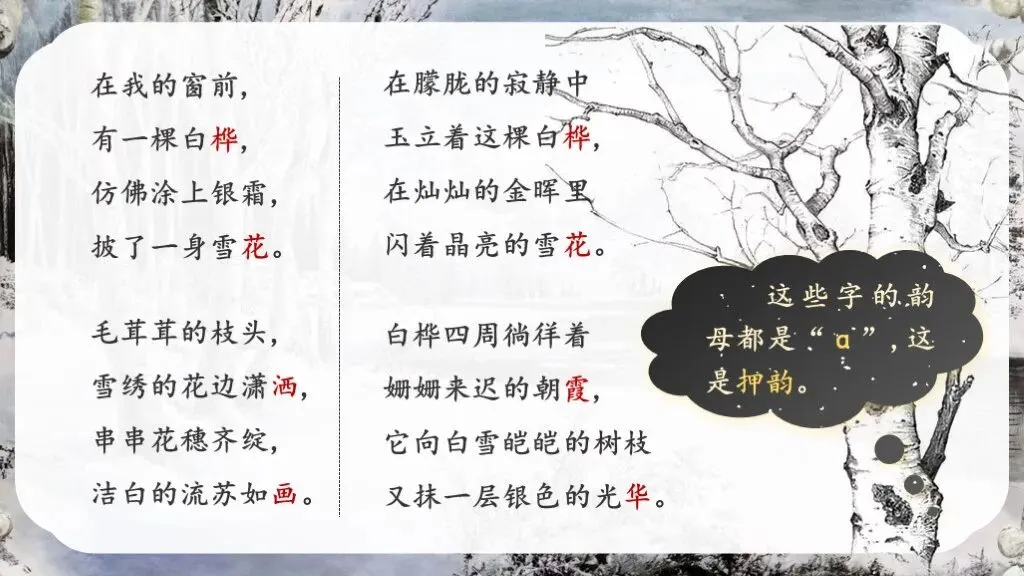 在我的窗前，
有一棵白桦，
仿佛涂上银霜，
披了一身雪花。
毛茸茸的枝头，
雪绣的花边潇洒，
串串花穗齐绽，
洁白的流苏如画。
在朦胧的寂静中
玉立着这棵白桦，
在灿灿的金晖里
闪着晶亮的雪花。
白桦四周徜徉着
姗姗来迟的朝霞，
它向白雪皑皑的树枝
又抹一层银色的光华。
这些字的韵
母都是“ɑ”，这
是押韵。